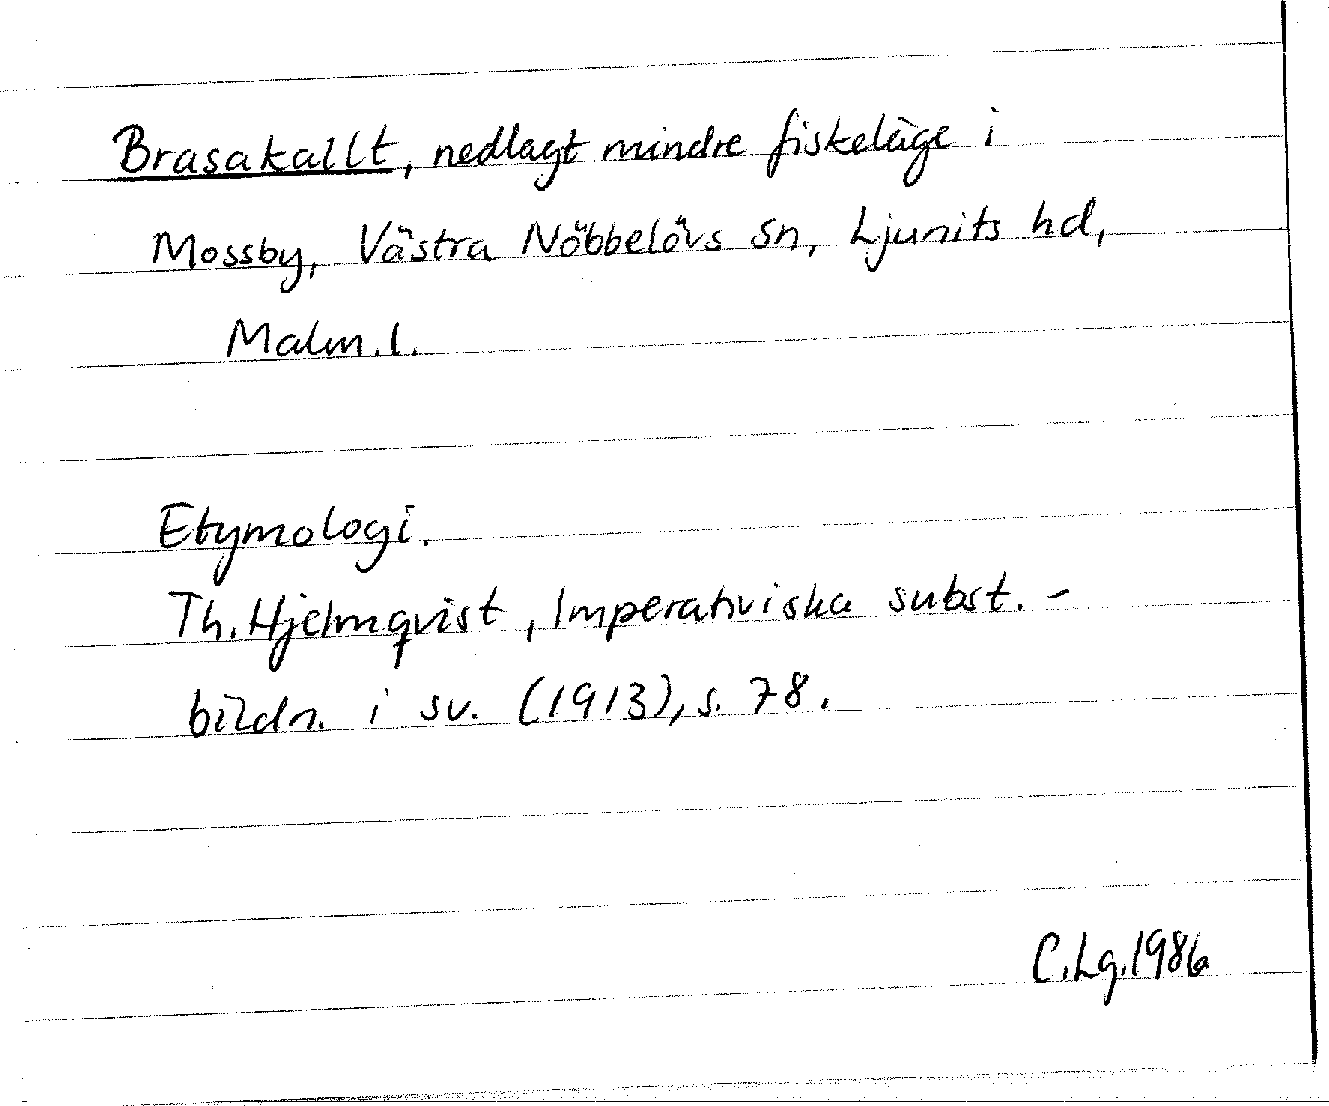 Brasakallt, nedlagt mindre fiskeläge i
Mossby, Västra Nöbbelövs sn, Ljunits hd,
Malm. l.
Etymologi.
Th. Hjelmqvist, Imperativiska subst. -
bildn. i sv. (1913), s. 78.
C. Lg. 1986